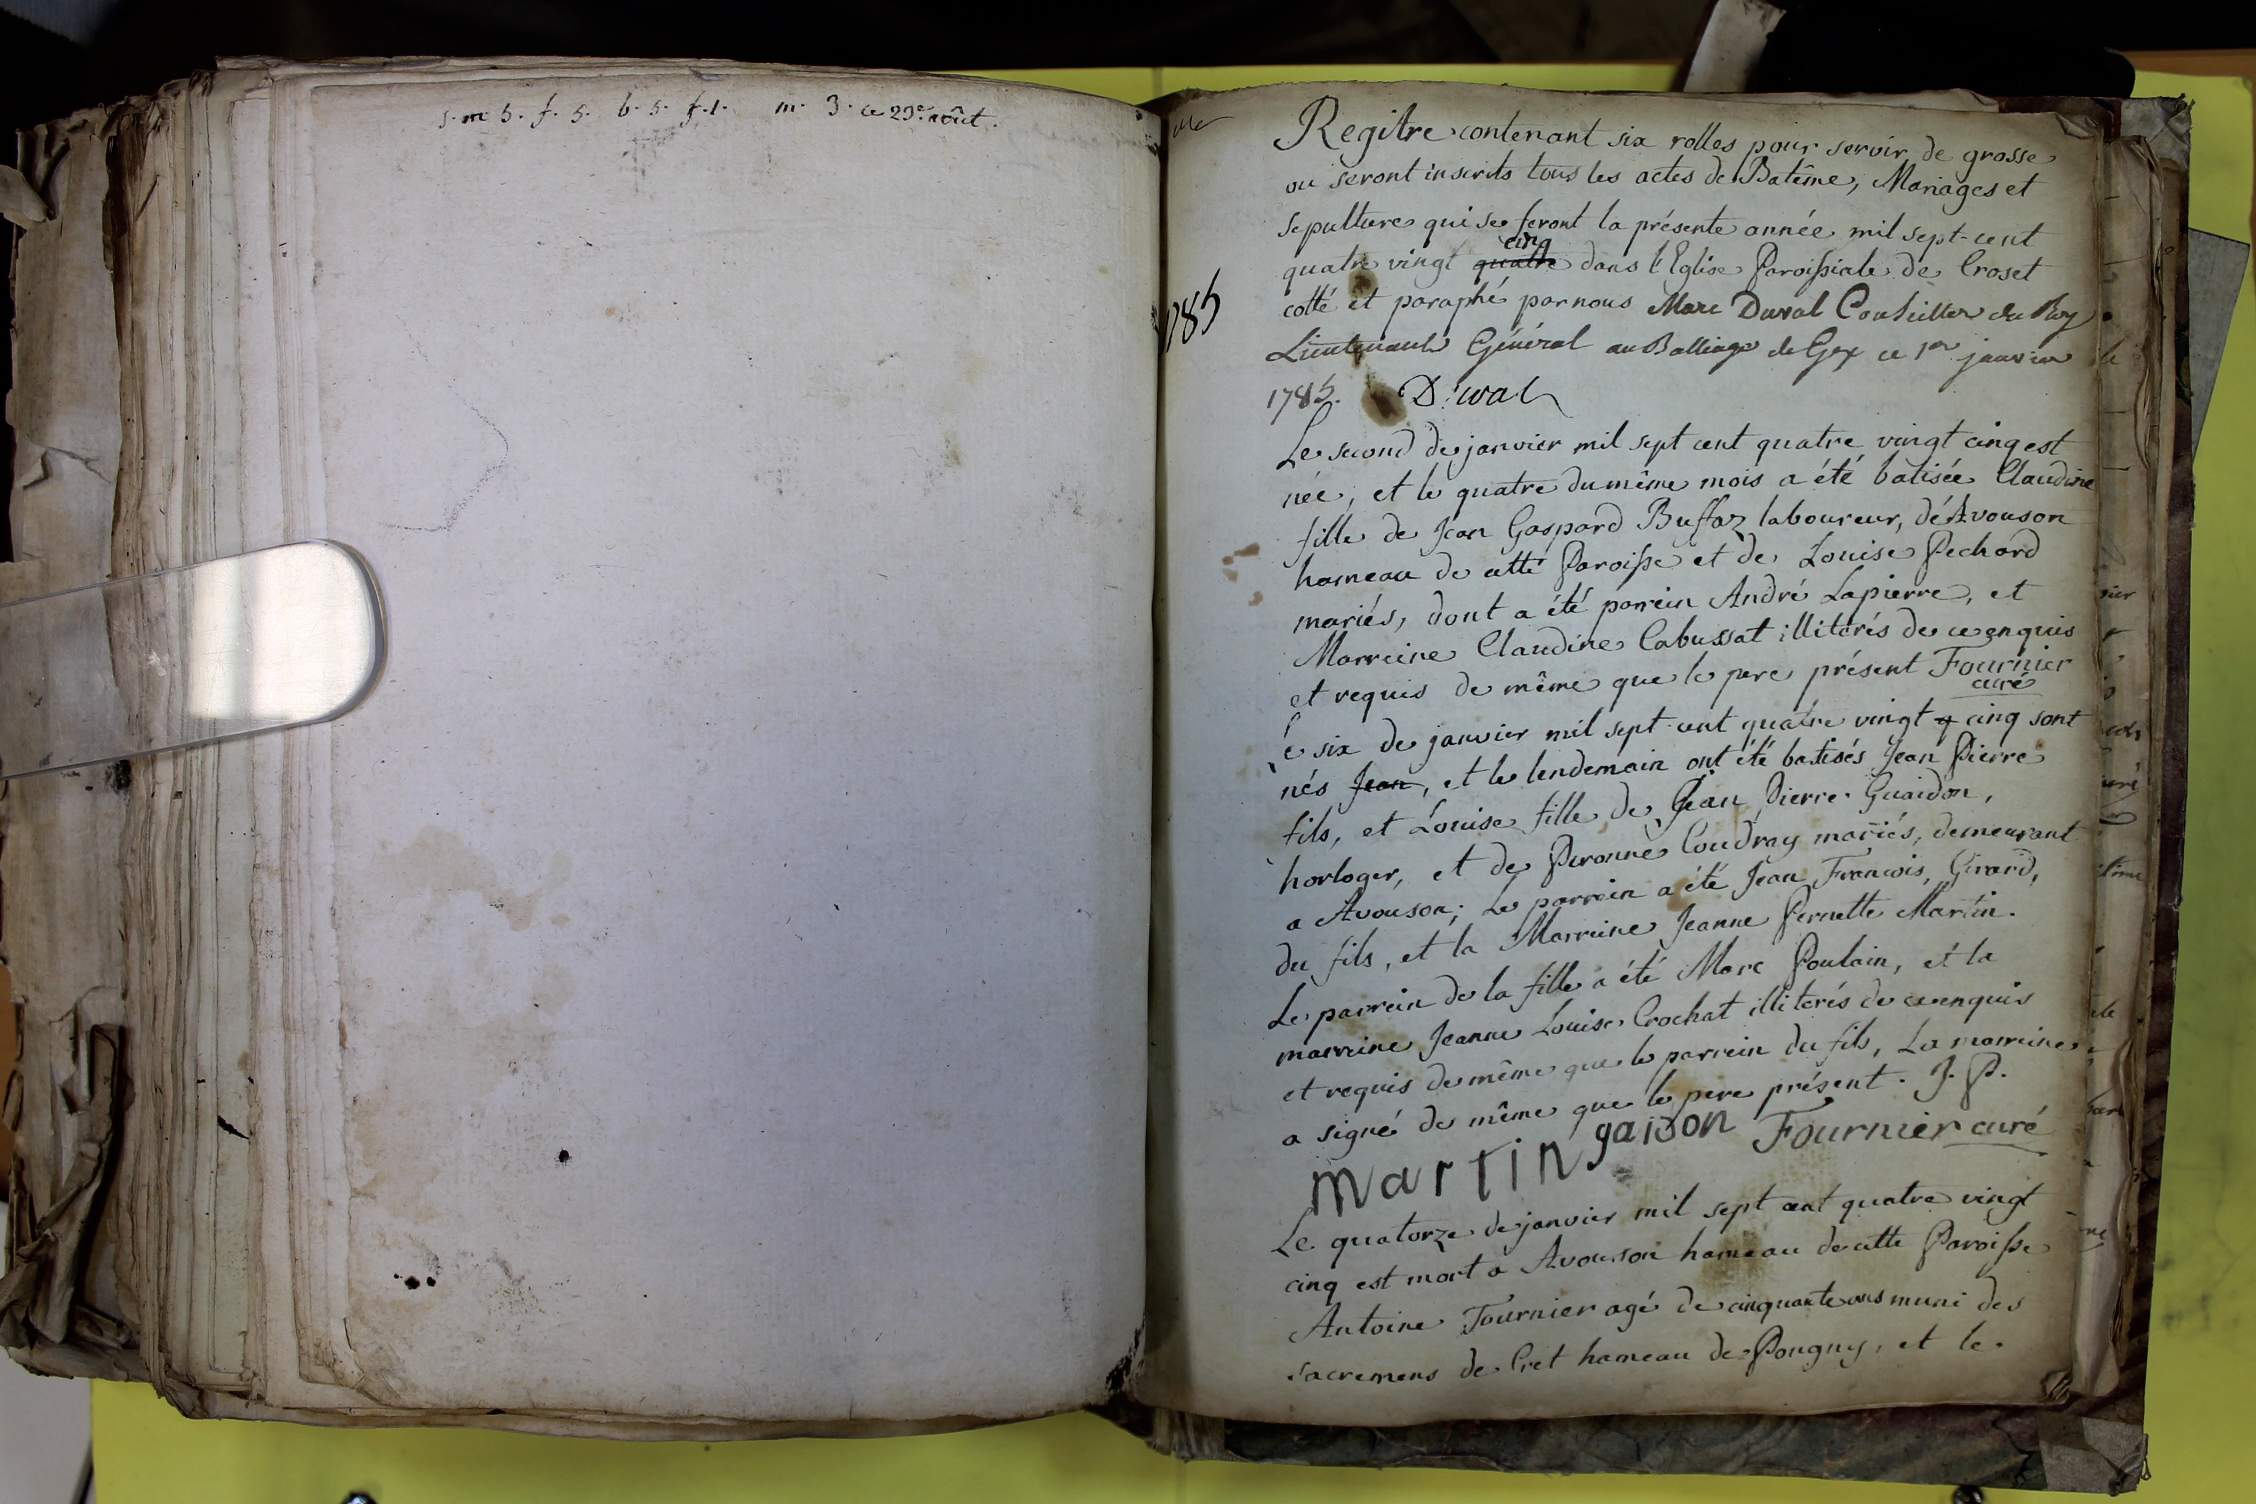 s. m 5. f. 5. b. 5. f. 1. m. 3. ce 29e. août.
1785
Regitre contenant six rolles pour servir de grosse
ou seront inscrits tous les actes de Batême, Mariages et
sepulture qui se feront la présente année mil sept-cent
cinq
quatre vingt quatre dans l'Eglise Paroissiale de Croset
cotté et paraphé par nous Marc Duval Conseiller du Roy
Lieutenant Général au Balliage de Gex ce 1er janvier
1785. Duval
Le second de janvier mil sept cent quatre vingt cinq est
née, et le quatre du même mois a été batisée Claudine
fille de Jean Gaspard Buffaz laboureur, d'Avouson
hameau de cette Paroisse et de Louise Pechard
mariés, dont a été parrein André Lapierre, et
Marreine Claudine Cabussat illiterés de ce enquis
et requis de même que le pere présent Fournier
curé
Le six de janvier mil sept cent quatre vingt q cinq sont
nés Jean, et le lendemain ont été batisés Jean Pierre
fils, et Louise fille de Jean Pierre Guaidon,
horloger, et de Peronne Coudray mariés, demeurant
a Avouson; Le parrein a été Jean Francois, Girard,
du fils, et la Marreine Jeanne Pernette Martin.
Le parrein de la fille a été Marc Poulain, et la
marreine Jeanne Louise Crochat illiterés de ce enquis
et requis de même que le parrein du fils, La marreine
a signé de même que le pere présent. J. P.
martin gaidon Fournier curé
Le quatorze de janvier mil sept cent quatre vingt
cinq est mort a Avouson hameau de cette Paroisse
Antoine Fournier agé de cinquante ans muni des
sacremens de Cret hameau de Pougny, et le